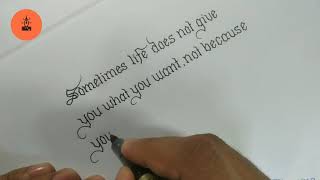 Sometimes life does not give
you what you want, not because
you